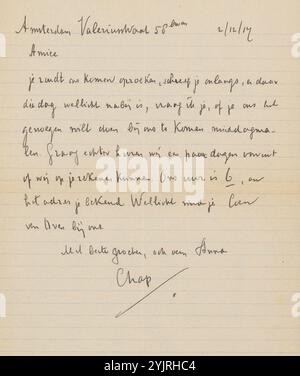 Amsterdam Valeriusstraat 50 huis 2/12/17
Amice
je zoudt ons komen opzoeken, schreef je onlangs, en daar
die dag wellicht nabij is, vraag ik je, of je ons het
genoegen wilt doen bij ons te komen middagma-
len. Graag echter hooren wij een paar dagen vooruit
of wij op je rekenen kunnen. Ons uur is 6, en
het adres je bekend. Wellicht
van Oven bij ons.
Met beste groeten, ook van Anna
Chap
alamy
Image ID: 2YJRHC4
www.alamy.com